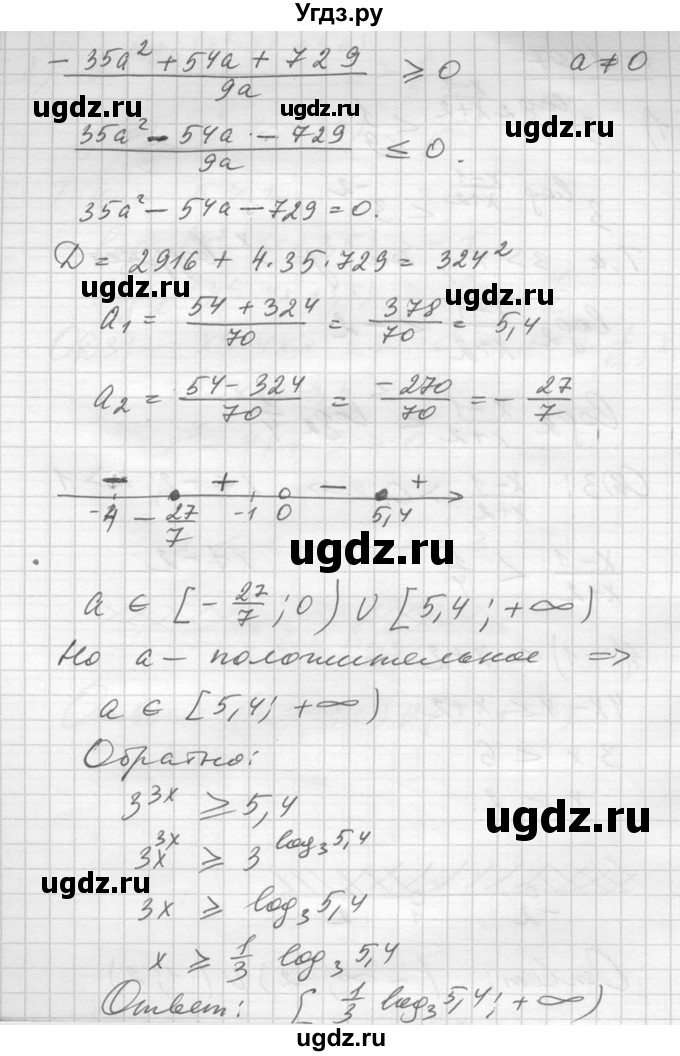 Угдз.ру
(-35a² + 54a + 729)/(9a) ⩾ 0   a ≠ 0
ugdz.ru ugdz.ru ugdz.ru
(35a² - 54a - 729)/(9a) ≤ 0.
35a² - 54a - 729 = 0.
D = 2916 + 4·35·729 = 324²
ugdz.ru ugdz.ru
a₁ = (54 + 324)/70 = 378/70 = 5,4
a₂ = (54 - 324)/70 = -270/70 = - 27/7
- + - +
-4 - 27/7 -1 0 5,4
ugdz.ru
a ∈ [- 27/7 ; 0) ∪ [5,4 ; +∞)
Но a - положительное ⇒
a ∈ [5,4; +∞)
Обратно:
3^(3x) ⩾ 5,4
ugdz.ru
3^(3x) ⩾ 3^(log₃ 5,4)
ugdz.ru
3x ⩾ log₃ 5,4
ugdz.ru
x ⩾ 1/3 log₃ 5,4
ugdz.ru
Ответ: [1/3 log₃ 5,4; +∞)
ugdz.ru